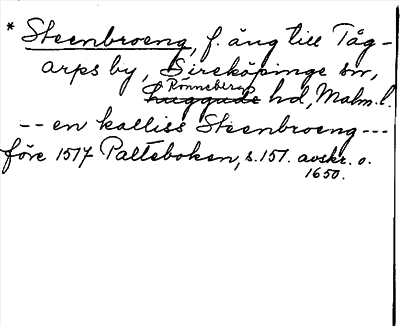 * Steenbroeng, f. äng till Tåg-
arps by, Sireköpinge sn,
Rönneberg
Luggude hd, Malm. l.
-- en kalliss Steenbroeng ---
före 1517 Palteboken, s. 151. avskr. o.
1650.